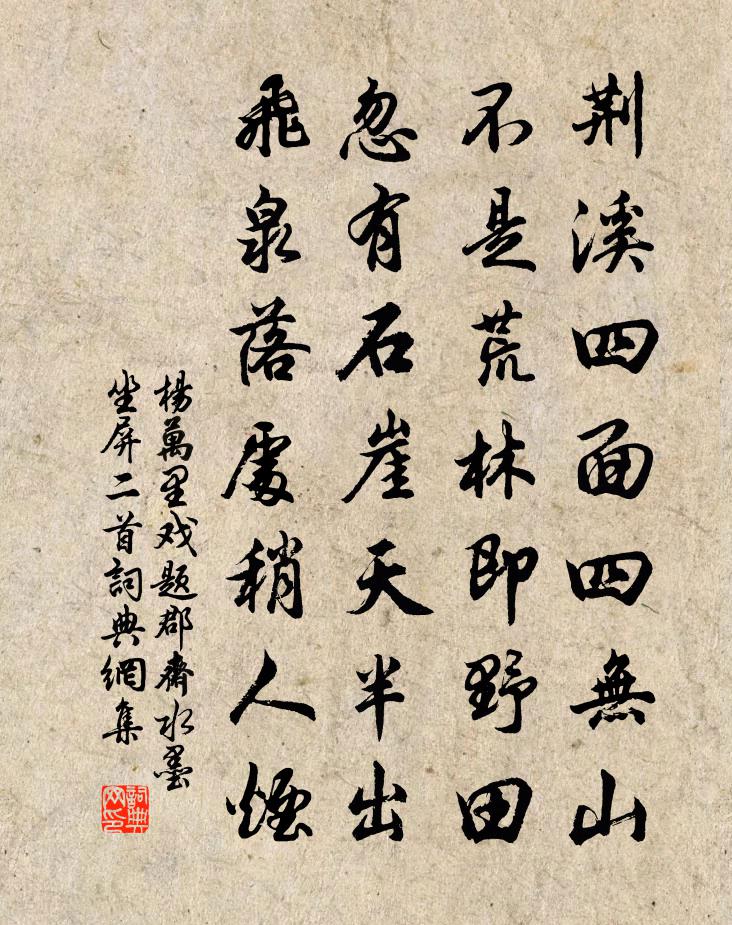 荆溪四面四無山
不是荒林即野田
忽有石崖天半出
飛泉落處稍人煙
楊萬里戏题郡齋水墨
坐屏二首詞典網集
詞典网印